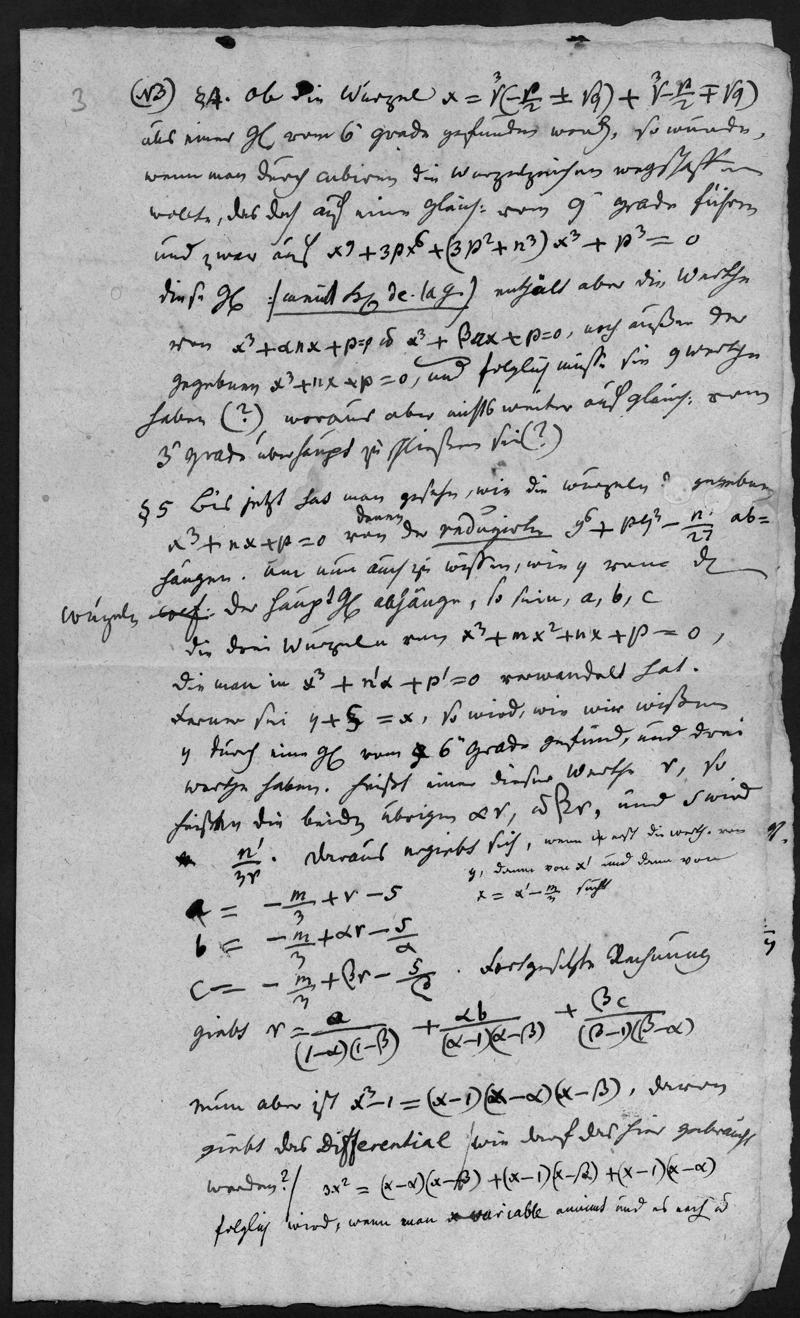 3
(NB) §4. Ob die Wurzel x = ∛(-p/2 ± √q) + ∛(-p/2 ∓ √q)
aus einer Gl vom 6 grade gefunden word, so würde,
wenn man durch cubiren die Wurzelzeichen wegschaffen
wollte, das doch auf eine gleich: vom 9 grade führen
und zwar auf x⁹ + 3px⁶ + (3p² + n³) x³ + p³ = 0
diese Gl /: de. la g.) enthält aber die Werthe
von x³ + αnx + p=0 & x³ + βnx + p=0, noch außer der
gegebenen x³ + nx + p = 0, und folglich müsse sie 9 werthe
haben (?) woraus aber nichts weiter auf gleich: vom
3 grade überhaupt zu schließen sei (?)
§5 Bis jetzt hat man gesehen, wie die wurzeln d gegebenen
x³ + nx + p = 0 von denen der reduzirten y⁶ + py³ - n³/27 ab=
hängen. Um nun auch zu wissen, wie y von d
Wurzeln coef: der haupt Gl abhänge, so sein, a, b, c
die drei Wurzeln von x³ + mx² + nx + p = 0,
die man in x³ + n'x + p' = 0 verwandelt hat.
Ferner sei y + z = x, so wird, wie wir wißen
y durch eine Gl vom 6 grade gefund, und drei
werthe haben. heißt einer dieser Werthe r, so
heißen die beiden übrigen αr, & βr, und s wird
n'/3r. Daraus ergiebt sich, wenn erst die werth. von
y, dann von x' und dann von
x = x' - m/3 sucht
a = -m/3 + r - s
b = -m/3 + αr - s/α
c = -m/3 + βr - s/β. Fortgesetzte Rechnung
giebt r = a/((1-α)(1-β)) + αb/((α-1)(α-β)) + βc/((β-1)(β-α))
nun aber ist x³-1 = (x-1)(x-α)(x-β), davon
giebt das Differential /wie darf das hier gebraucht
werden?/ 3x² = (x-α)(x-β) + (x-1)(x-β) + (x-1)(x-α)
folglich wird, wenn man x variable annimt und es nach &